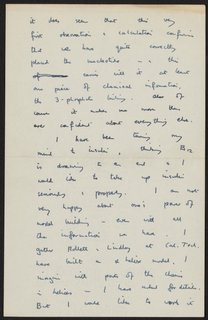 it does seem that this very
fine observation & calculation confirms
that we have quite correctly
placed the nucleotides - & this
carries with it at least
one piece of chemical information,
the 3-phosphate linking. Also of
course it makes me more than
ever confident about everything else.
I have been turning my
mind to insulin, thinking B12
is drawing to an end & I
would like to take up insulin
seriously & properly. I am not
very happy about one's power of
model building - even with all
the information we have. I
gather Pollett & Lindley at Cal. Tech.
have built a helix model, I
imagine with parts of the chains
in helices - I have asked for details.
But I would like to work it